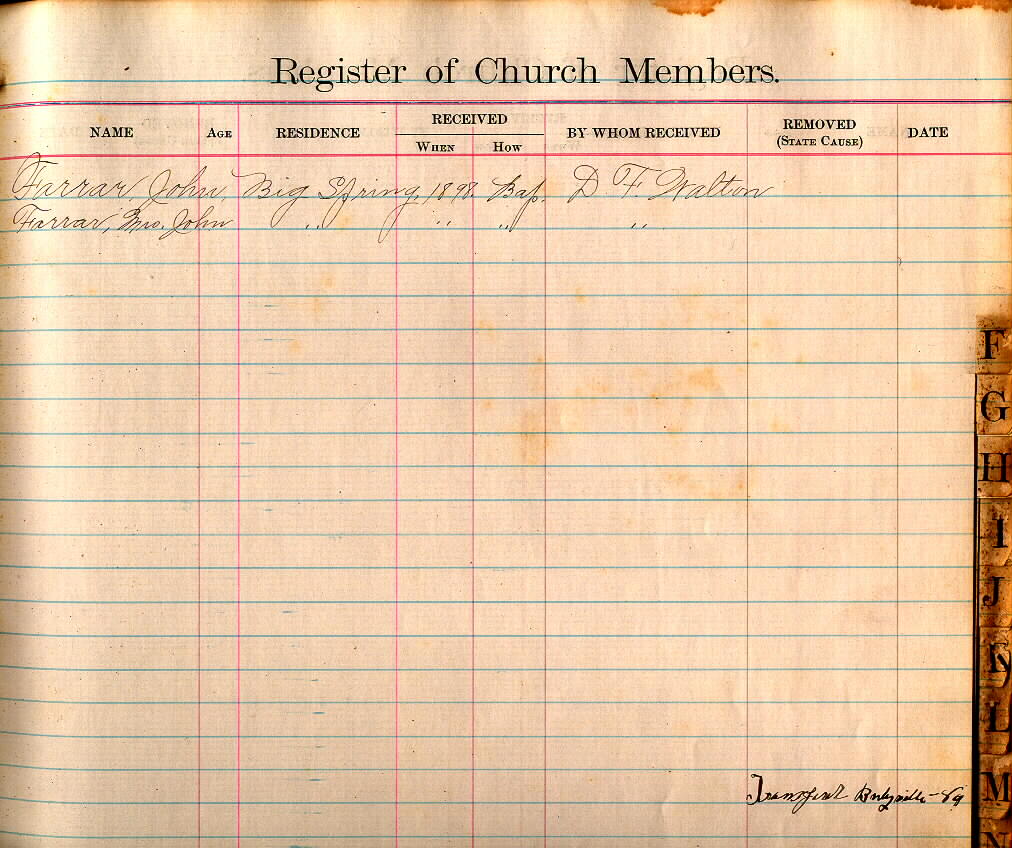 Register of Church Members.
NAME AGE RESIDENCE RECEIVED WHEN HOW BY WHOM RECEIVED REMOVED (STATE CAUSE) DATE
Farrar, John, Big Spring, 1898. Bap. D F. Walton
Farrar, Mrs. John " " " "
F
G
H
I
J
K
L
M
N